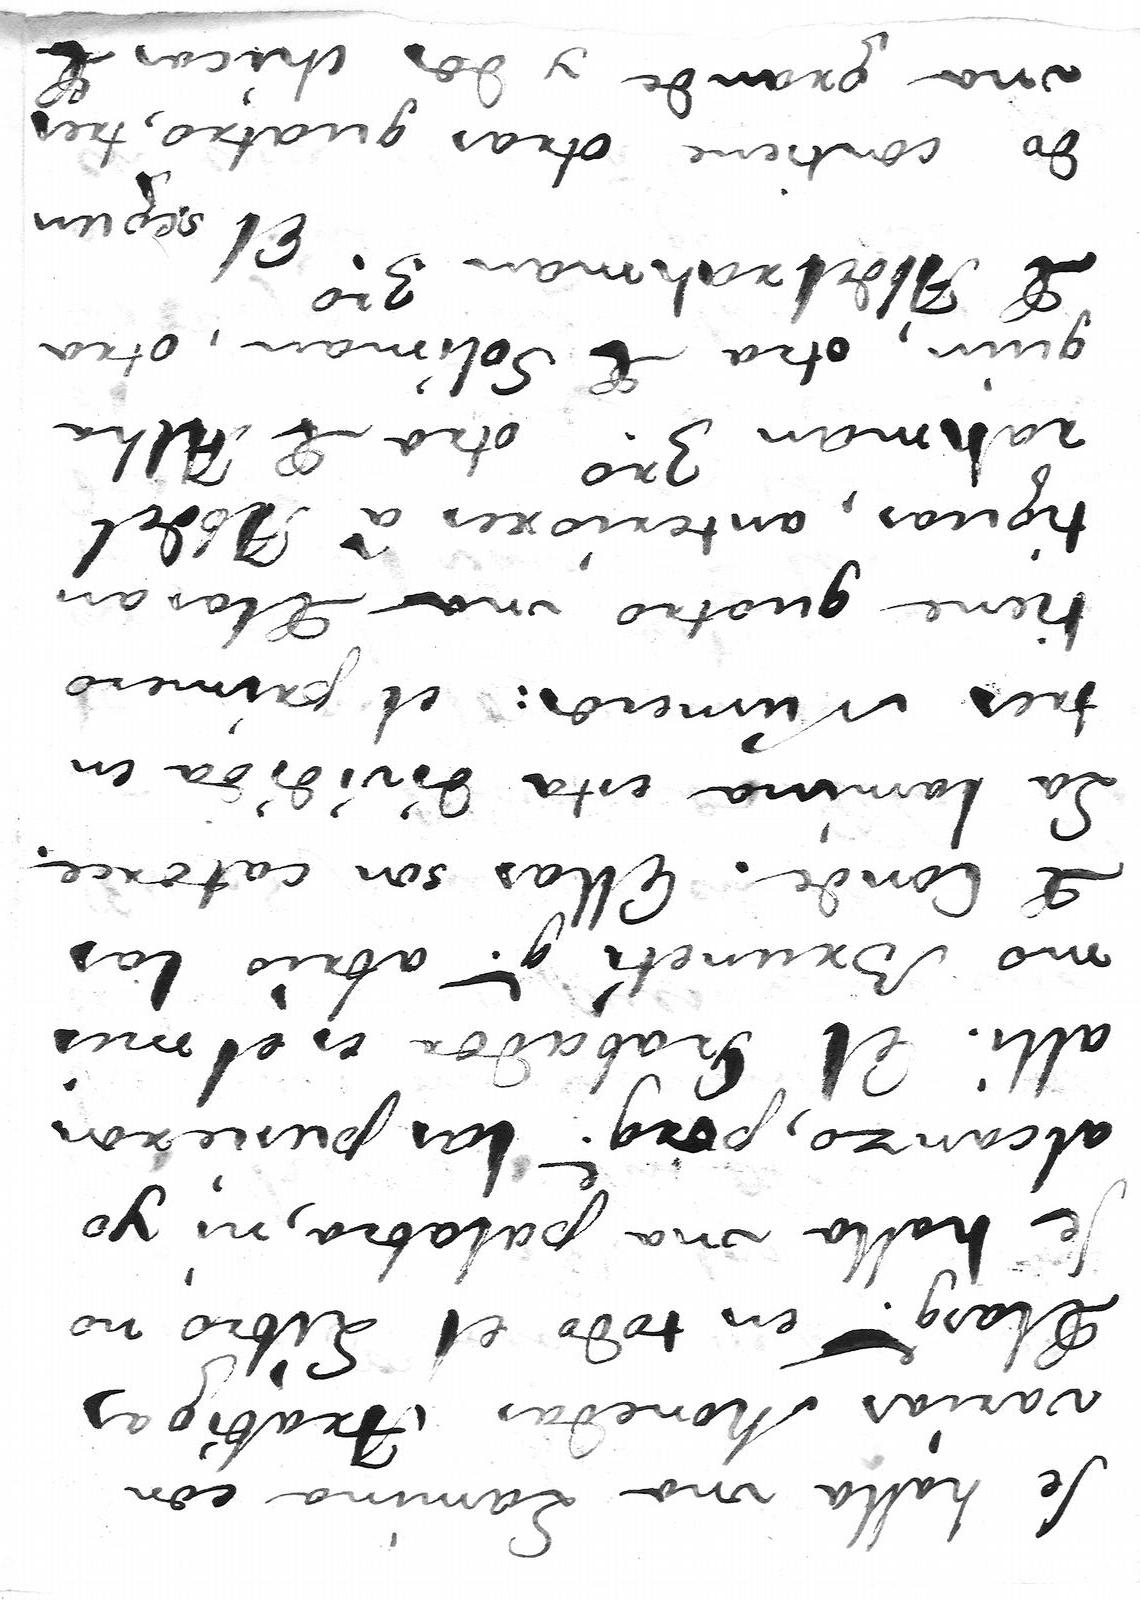 Se halla vna Lamina con
varias Monedas Arabigas
Delasq.e en todo el Libro, no
se halla vna palabra, ni yo
alcanzo, porq.e las pusieron
alli. El Grabador es el mis
mo Bruneti q.e abrió las
de Conde. Ellas son catorce.
La lamina esta dividida en
tres Numeros: el primero
tiene quatro vna delasan
tiguas, anteriores á Abdel
rahman 3.ro otra de Alha
quin, otra de Soliman, otra
de Abdelrahman 3.ro El segun
do contiene otras quatro, tres
vna grande y dos chicas de